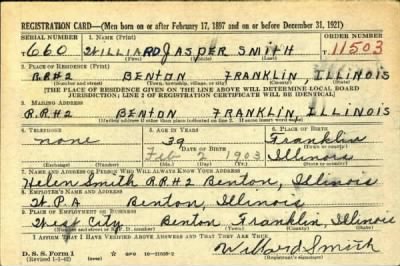 REGISTRATION CARD—(Men born on or after February 17, 1897 and on or before December 31, 1921)
SERIAL NUMBER 1. NAME (Print) ORDER NUMBER
U660 WILLIARD JASPER SMITH 11503
(First) (Middle) (Last)
2. PLACE OF RESIDENCE (Print)
R.R#2 BENTON FRANKLIN, ILLINOIS
(Number and street) (Town, township, village, or city) (County) (State)
[THE PLACE OF RESIDENCE GIVEN ON THE LINE ABOVE WILL DETERMINE LOCAL BOARD
JURISDICTION; LINE 2 OF REGISTRATION CERTIFICATE WILL BE IDENTICAL]
3. MAILING ADDRESS
R.R.#2 BENTON FRANKLIN, ILLINOIS
(Mailing address if other than place indicated on line 2. If same insert word same)
4. TELEPHONE 5. AGE IN YEARS 6. PLACE OF BIRTH
none 39 Franklin
DATE OF BIRTH (Town or county)
Feb 2 1903 Illinois
(Exchange) (Number) (Mo.) (Day) (Yr.) (State or country)
7. NAME AND ADDRESS OF PERSON WHO WILL ALWAYS KNOW YOUR ADDRESS
Helen Smith R.R#2 Benton, Illinois
8. EMPLOYER'S NAME AND ADDRESS
W.P.A Benton, Illinois
9. PLACE OF EMPLOYMENT OR BUSINESS
West City Benton Franklin, Illinois
(Number and street or R. F. D. number) (Town) (County) (State)
I AFFIRM THAT I HAVE VERIFIED ABOVE ANSWERS AND THAT THEY ARE TRUE.
D. S. S. Form 1
(Revised 1-1-42) GPO Willard Smith